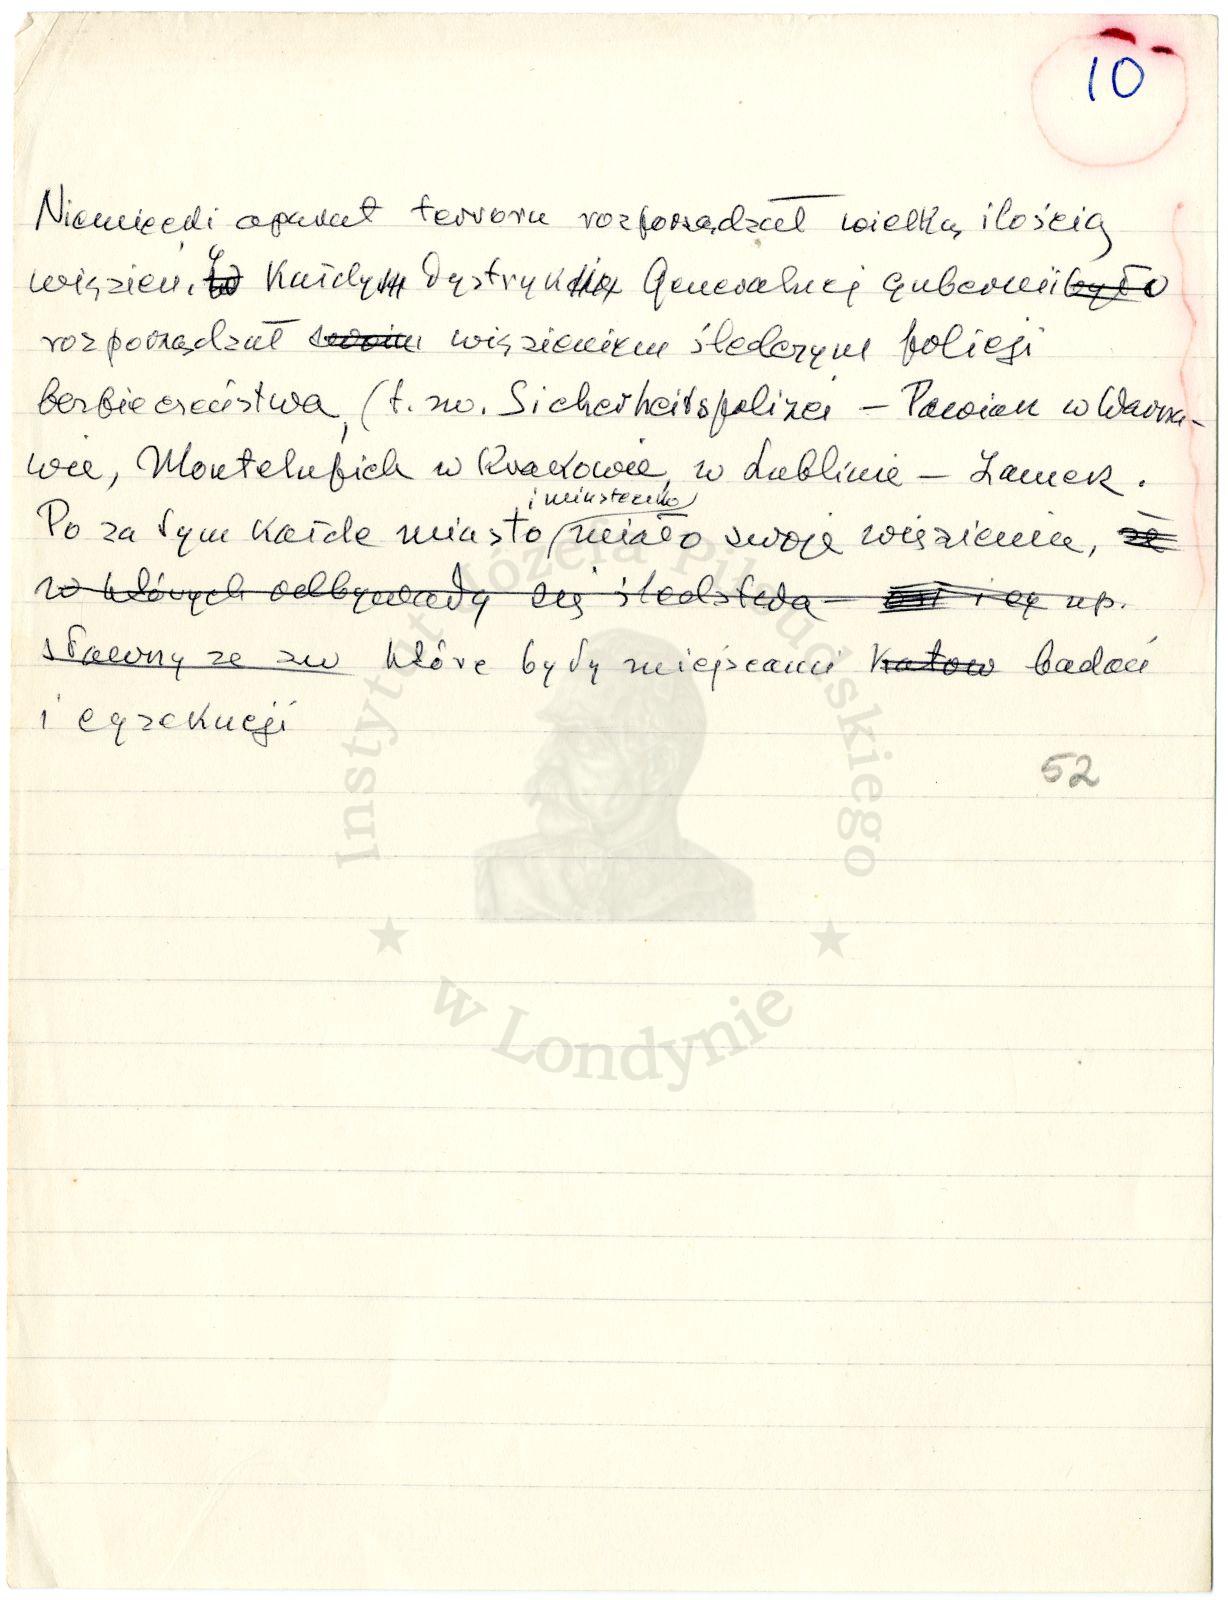 10
Niemiecki aparat terroru rozporządzał wielką ilością
więzień. Każdy Dystrykt Generalnej Gubernii było
rozporządzał swoim więzieniem śledczym policji
bezpieczeństwa, (t. zw. Sicherheitspolizei – Pawiak w Warsza-
wie, Montelupich w Krakowie, w Lublinie – Zamek.
i miasteczko
Po za tym każde miasto miało swoje więzienie, że
w których odbywały się śledztwa – i eg np.
sławny ze zw które były miejscami katow badań
i egzekucji
52
Instytut Józefa Piłsudskiego
w Londynie